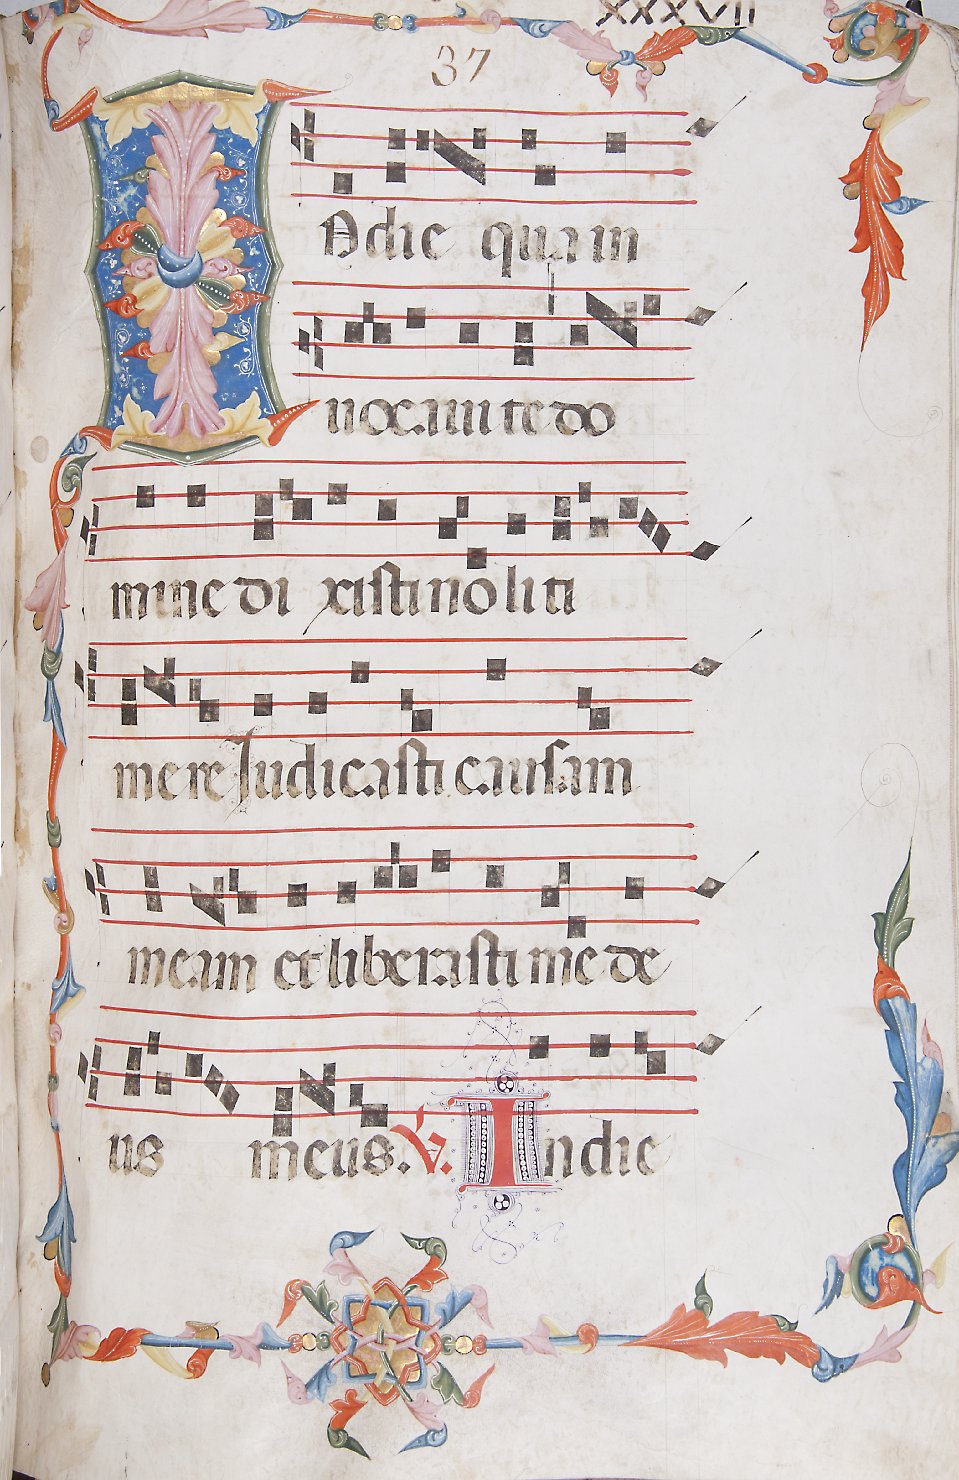 XXXVII
37
IN die qua in
uocaui te do
mine dixisti noli ti
mere Judicasti causam
meam et liberasti me de
us meus. V. In die